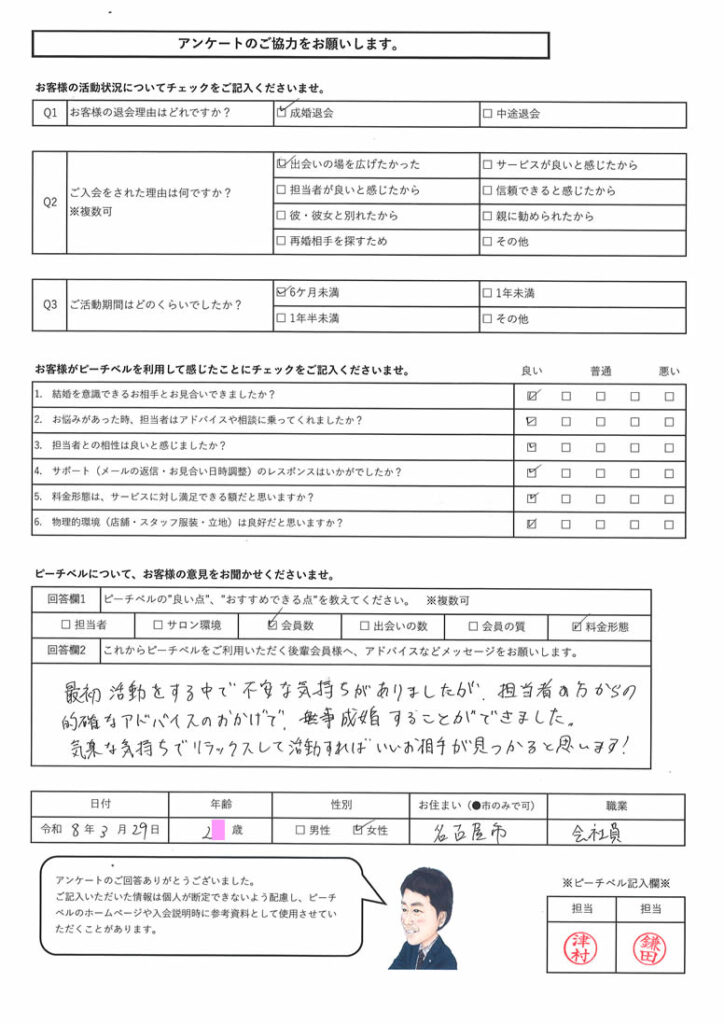 アンケートのご協力をお願いします。
お客様の活動状況についてチェックをご記入くださいませ。
Q1 お客様の退会理由はどれですか？ ☑成婚退会 □中途退会
Q2 ご入会をされた理由は何ですか？ ※複数可
☑出会いの場を広げたかった □サービスが良いと感じたから
□担当者が良いと感じたから □信頼できると感じたから
□彼・彼女と別れたから □親に勧められたから
□再婚相手を探すため □その他
Q3 ご活動期間はどのくらいでしたか？
☑6ケ月未満 □1年未満
□1年半未満 □その他
お客様がピーチベルを利用して感じたことにチェックをご記入くださいませ。 良い 普通 悪い
1. 結婚を意識できるお相手とお見合いできましたか？ ☑ □ □ □ □
2. お悩みがあった時、担当者はアドバイスや相談に乗ってくれましたか？ ☑ □ □ □ □
3. 担当者との相性は良いと感じましたか？ ☑ □ □ □ □
4. サポート（メールの返信・お見合い日時調整）のレスポンスはいかがでしたか？ ☑ □ □ □ □
5. 料金形態は、サービスに対し満足できる額だと思いますか？ ☑ □ □ □ □
6. 物理的環境（店舗・スタッフ服装・立地）は良好だと思いますか？ ☑ □ □ □ □
ピーチベルについて、お客様の意見をお聞かせくださいませ。
回答欄1 ピーチベルの"良い点"、"おすすめできる点"を教えてください。 ※複数可
□担当者 □サロン環境 ☑会員数 □出会いの数 □会員の質 ☑料金形態
回答欄2 これからピーチベルをご利用いただく後輩会員様へ、アドバイスなどメッセージをお願いします。
最初 活動をする中で不安な気持ちがありましたが、担当者の方からの
的確なアドバイスのおかげで、無事成婚することができました。
気楽な気持ちでリラックスして活動すればいいお相手が見つかると思います！
日付 年齢 性別 お住まい（●市のみで可） 職業
令和 8年 3月 29日 2 歳 □男性 ☑女性 名古屋市 会社員
アンケートのご回答ありがとうございました。
ご記入いただいた情報は個人が断定できないよう配慮し、ピーチ
ベルのホームページや入会説明時に参考資料として使用させてい
ただくことがあります。
※ピーチベル記入欄※
担当 担当
津村 鎌田